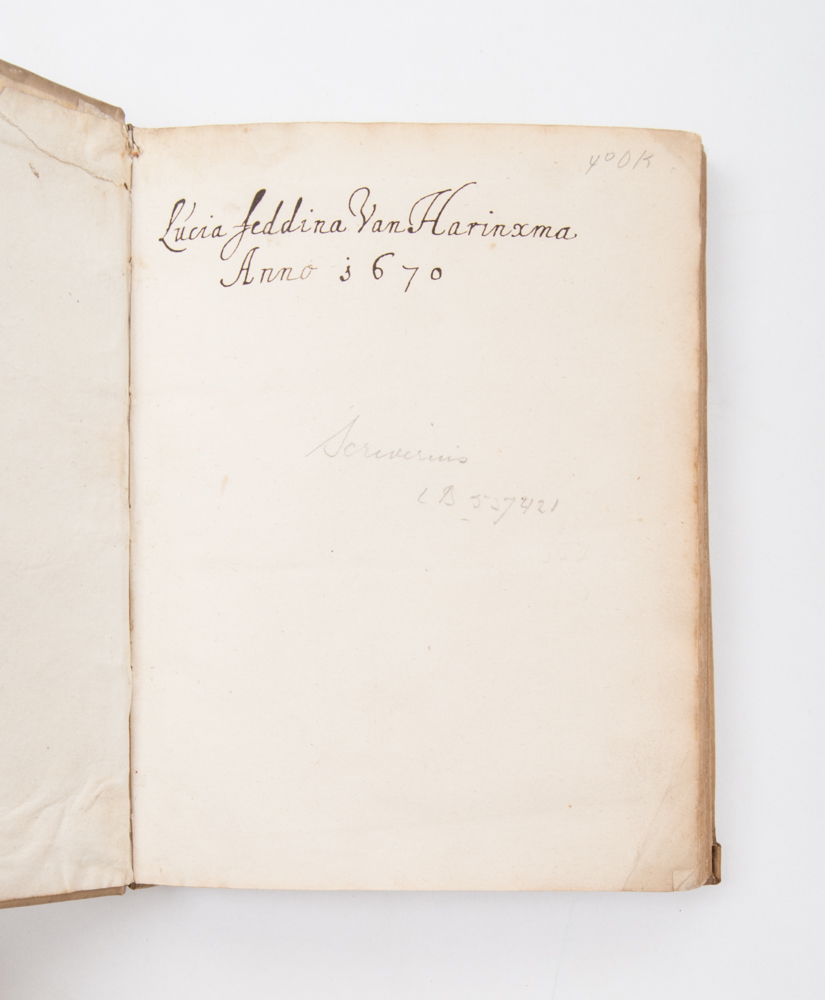 400K
Lúcia feddina Van Harinxma
Anno 1670
Scriverius